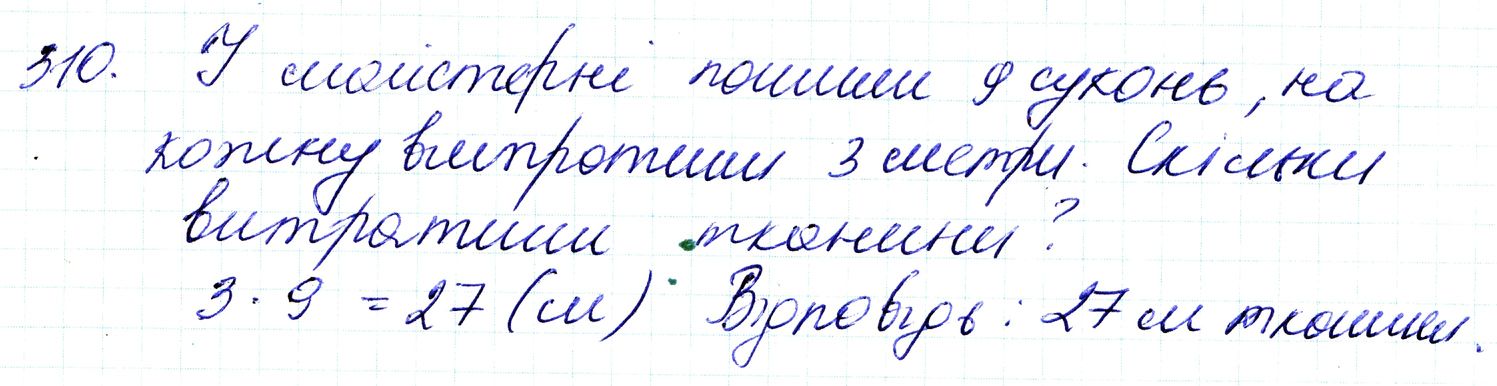 310. У майстерні пошили 9 суконь, на
кожну витратили 3 метри. Скільки
витратили тканини?
3 · 9 = 27 (м) Відповідь: 27 м тканини.